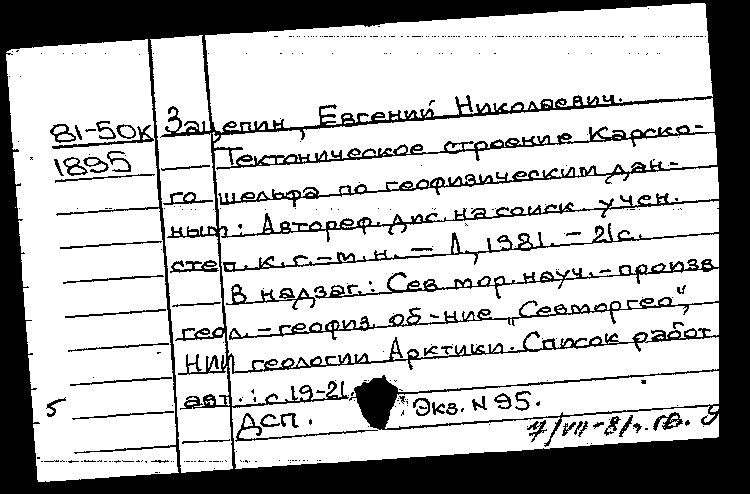 81-50к Зацепин, Евгений Николаевич.
1895 Тектоническое строение Карско-
го шельфа по геофизическим дан-
ным: Автореф. дис. на соиск. учен.
степ. к. г.-м. н. — Л., 1981. - 21с.
В надзаг.: Сев мор. науч.-произв
геол.-геофиз. об-ние „Севморгео",
НИИ геологии Арктики. Список работ
авт.: с. 19-21.
5 ДСП. Экз. N 95.
7/VII-81г.